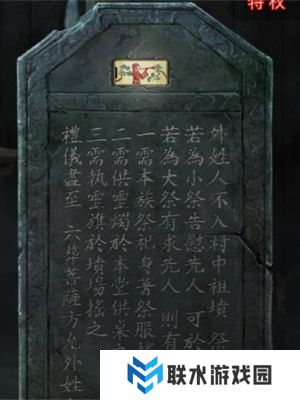 特权
外姓人不入村中祖墳 祭
若為小祭告慰先人 可於
若為大祭有求先人 則有
一需本族祭祀身著祭服
二需供靈燭於本堂供桌之
三需執靈旗於墳場搖之
禮儀盡至 六葬菩薩方允外姓
联水游戏园